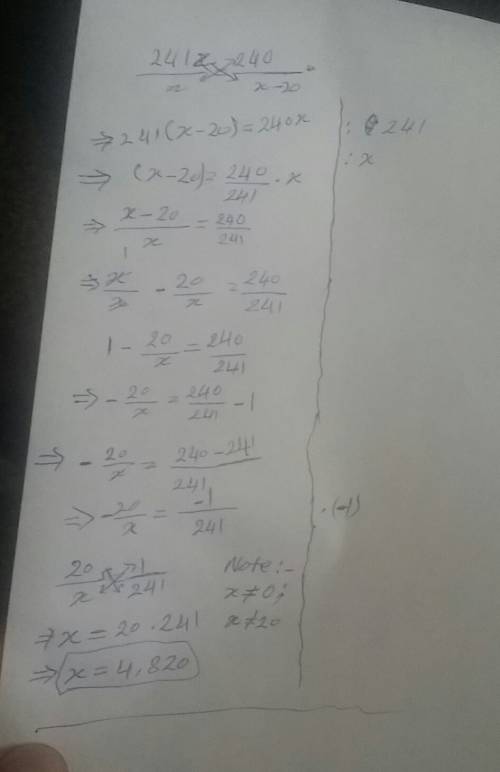 241 240
x x-20
⇒ 241(x-20)=240x : 241
⇒ (x-20)=240/241 · x : x
⇒ x-20/x = 240/241
⇒ x/x - 20/x = 240/241
1 - 20/x = 240/241
⇒ - 20/x = 240/241 - 1
⇒ - 20/x = 240-241/241
⇒ -20/x = -1/241 · (-1)
20/x 1/241 Note:-
x≠0;
⇒ x = 20 · 241 x≠20
⇒ x = 4,820